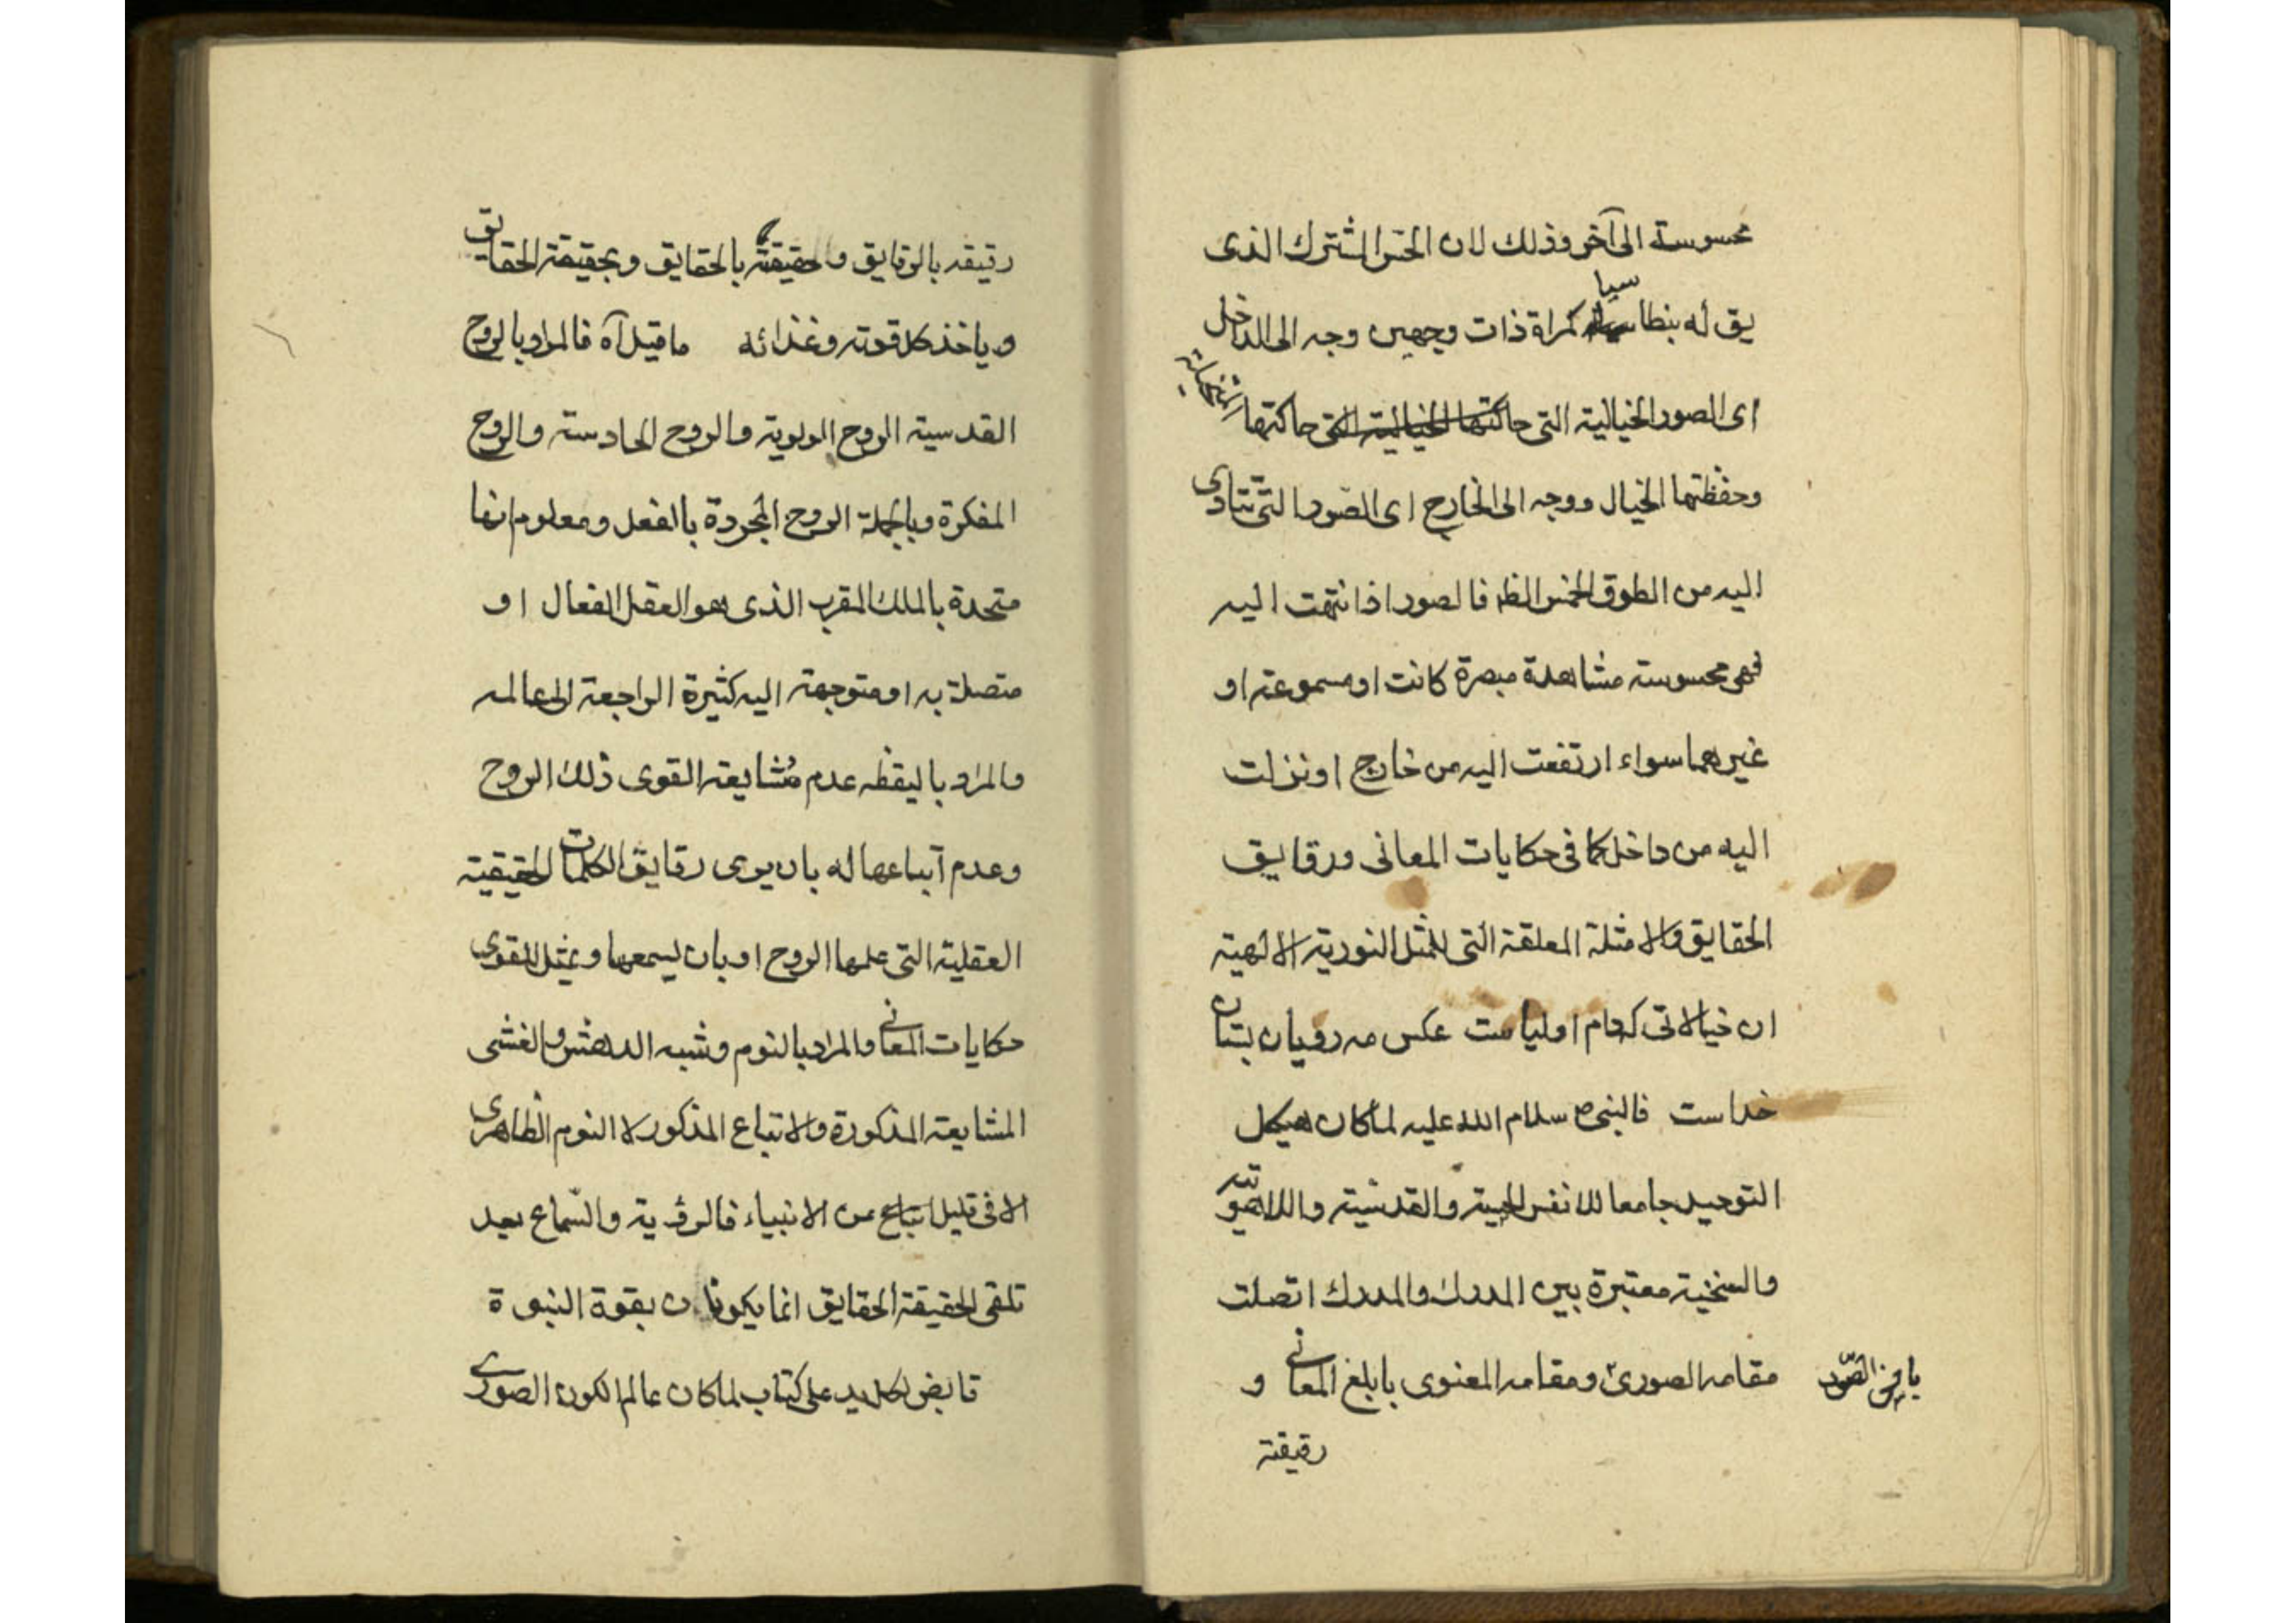 محسوسة الى آخر وذلك لان الحس المشترك الذى
يق له بنطاسيا كمراة ذات وجهين وجه الى الداخل
اى الصور الخيالية التى حاكتها الخيالية التى حاكتها
وحفظتها الخيال ووجه الى الخارج اى الصّور التى تتادى
اليه من الطرق الخمس الظه فالصور اذا انتهت اليه
فهى محسوسة مشاهدة مبصرة كانت او مسموعة او
غيرهما سواء ارتفعت اليه من خارج او نزلت
اليه من داخل كما فى حكايات المعانى ورقايق
الحقايق والامثلة المعلقة التى للمثل النورية الالهية
ان خيالاتى كه دام اولياست عكس مه رويان بستان
خداست فالنبى ص سلام الله عليه لما كان هيكل
التوحيد جامعا للانفس الحسية والقدسية واللاهوتيه
والسنخية معتبرة بين المدرك والمدرك اتصلت
مقامه الصورى ومقامه المعنوى بابلغ المعانى و
رقيقة
رقيقه بالرقايق والحقيقة بالحقايق وبحقيقة الحقايق
وياخذ كل قوته وغذائه ما قيل آه فالمراد بالروح
القدسية الروح المولوية والروح الحادسة والروح
المفكرة وبالجملة الروح المجردة بالفعل ومعلوم انها
متحدة بالملك المقرب الذى هو العقل الفعال او
متصلة به او متوجهة اليه كثيرة المراجعة الى عالمه
والمراد باليقظه عدم مُشايعة القوى ذلك الروح
وعدم اتباعها له بان يرى رقايق الكلمات الحقيقية
العقلية التى علمها الروح او بان يسمعها ويمثل للقوى
حكايات المعانى والمراد بالنوم وشبه الدهش والغشى
المشايعة المذكورة والاتباع المذكور لا النوم الظاهرى
الا فى قليل اتباع من الانبياء فالرؤية والسّماع بعد
تلقى الحقيقة الحقايق انما يكونان بقوة النبوة
قابض كل يد على كتاب لما كان عالم الكون الصورى